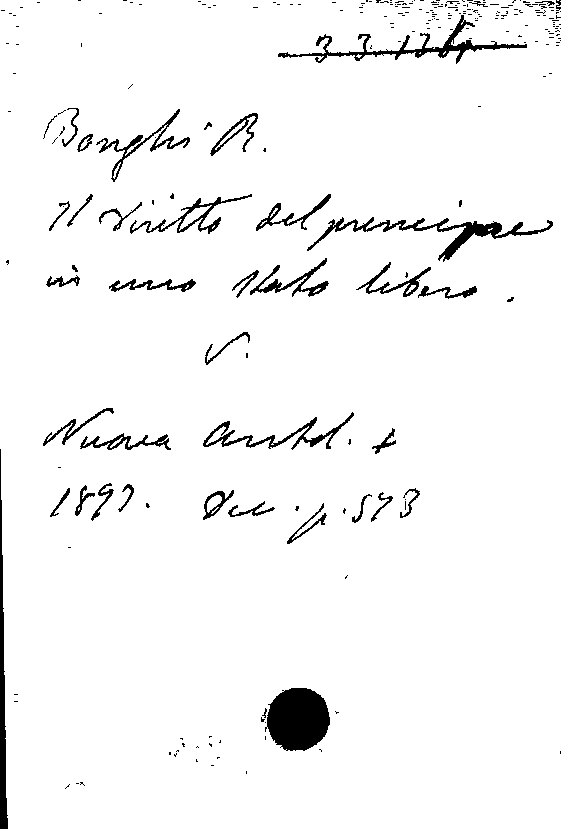 Bonghi R.
Il diritto del prencipe
in uno Stato libero.
V.
Nuova Antol. +
1893. Dec. p. 573